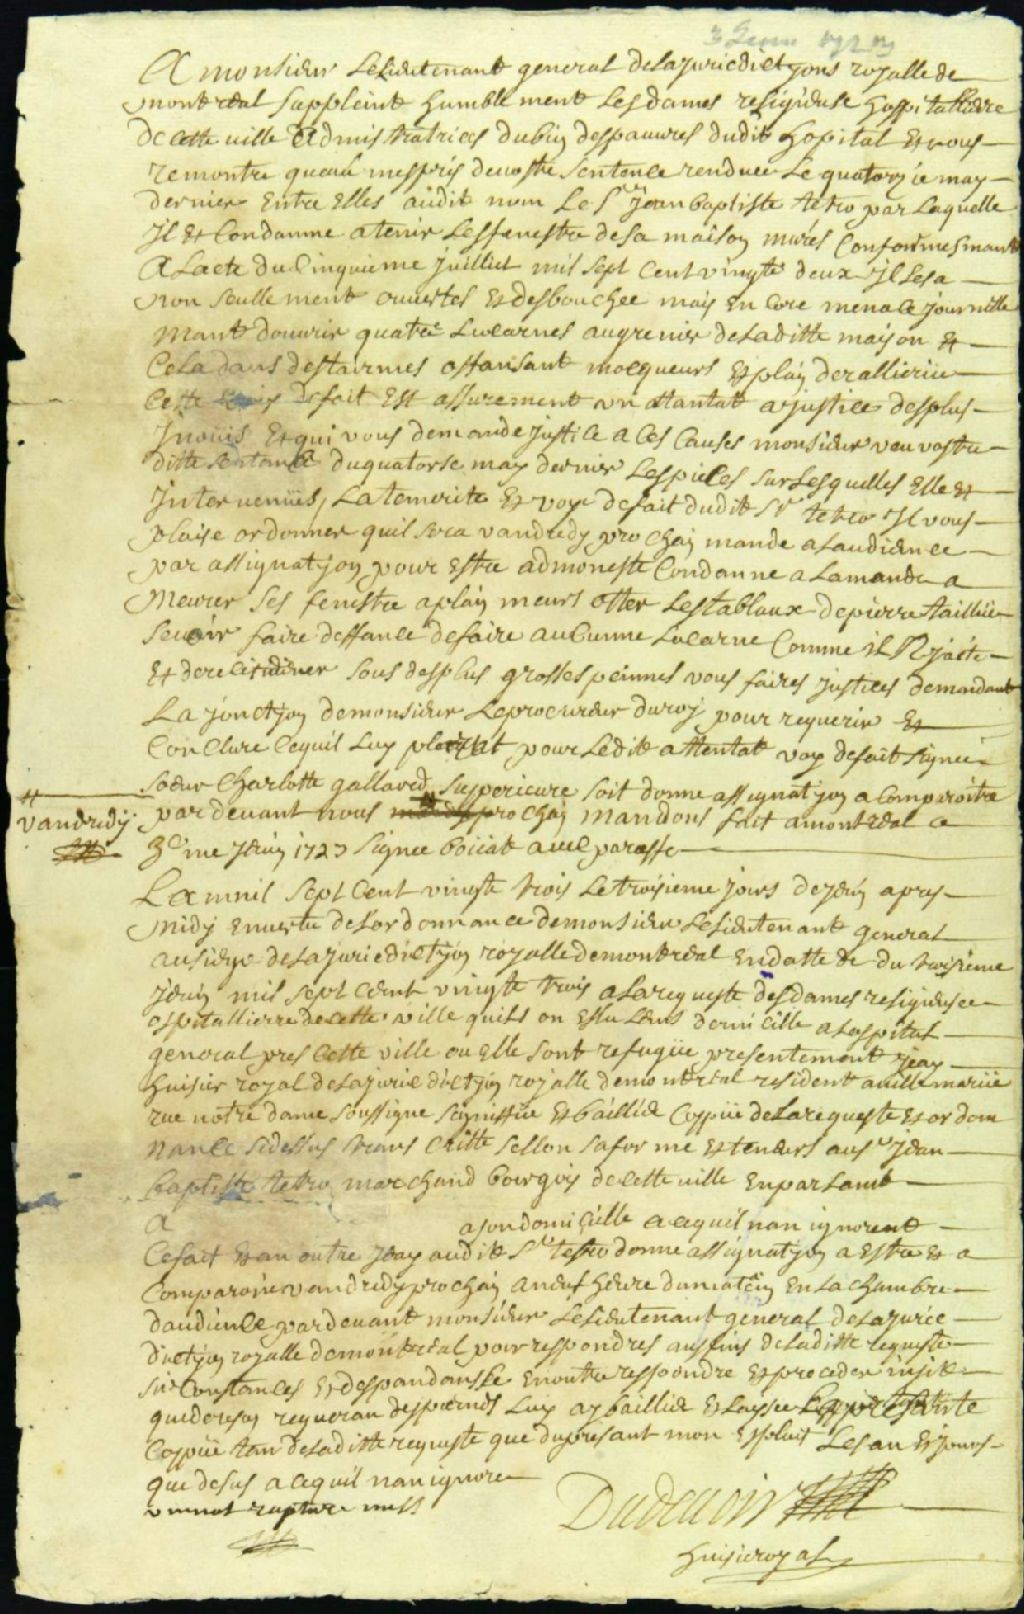 3 Juin 1723
A monsieur Lelieutenant general delajuricdictjons rojalle de
montreal suppleint humblement Lesdames religieuse hospitalliere
de cette ville admistratrices dubien despauvres dudit hopital Et vous
remontre quau mespris devostre sentence renduee Le quatorzie may
dernier Entre Elles audit nom Le Sr Jean baptiste tetro par Laquelle
Jl Et Condanne atenir Lesfenestre desa maison murés Conformesmant
A Lacte du Cinquieme Juilliet mil sept Cent vingte deux Jl Lesa
non seullement ouvertes Et desbouchee mais En Core menace journelle
mant douvrir quatre Lucarnes augrenier deladitte maison Et
Cela dans destairmes offansant mocqueurs Et plain deralliere
Cette defait Est assurement un attantat ajustice desplus
Jnoüis Et qui vous demande justice a Ces Causes monsieur veu vostre
ditte sentance duquatorse may dernier Lespieces surLesquelles Elle Et
Jntervenuës, Latemerite Et voye defait dudit Sr tetro Jl vous
plaise ordonner quil sera vandredy prochain mande alaudience
par assignatjon pour Estre admoneste Condanne a Lamande a
Meurer ses fenestre aplain meurs otter Lestablaux depierre tailliée
servir faire deffance defaire aucunne Lucarne Comme il
Et derecidiver sous desplus grosses peinnes vous faires justices demandant
La jonctjon demonsieur Leprocureur duroy pour requerir Et
Conclure Cequil Luy plairat pour Ledit attentat voy defait signee
soeur Charlotte gallard superieure soit donne assignatjon a Comparoitre
par devant nous prochain mandons fait amontreal Ce
vandredy
3eme Jeuin 1723 signee boüat avec paraffe
Lamil sept Cent vingte trois Letroisieme jours dejeuin apres
midy Envertu deLordonnance demonsieur Lelieutenant general
ausiege delajuricdictjon royalle demontreal Endatte de du troisieme
Jeuin mil sept Cent vingte trois alarequeste desdames religieuse
ospitalliere decette ville quils on Eslu Leurs domicille alospital
general pres Cette ville ou Elle sont refugüe presentement Jeay
huisier royal delajuricdictjon rojalle demontreal resident aville mariie
rue notre dame soussigne signiffiie Et bailliée Coppiie deLarequeste Et ordon
nance sidessus trans Critte sellon saforme Et teneurs aus Sr Jean
baptiste tetro marchand bourgois decette ville Enparlant
A
asondomicille acequil nan ignorent
Cefait Et an outre Jeay audit Sr tetro donne assignatjon a Estre Et a
Comparoir vandredy prochain aneuf heure dumatein En La chambre
daudience pardevant monsieur Lelieutenant general delajuric
dictjon royalle demontreal pour respondres aux fins deladitte requeste
sirConstances Et despandansLe Enoutre respondre Et proceder insite
quederesons requeran despeinds Luy aybailliée Et Laysee
Coppiie tan deladitte requeste que dupresant mon Exsploit Les an Et jours
que desus acequil nan ignore
vunnot rapture nulls
Dudevoir
huisieroyal